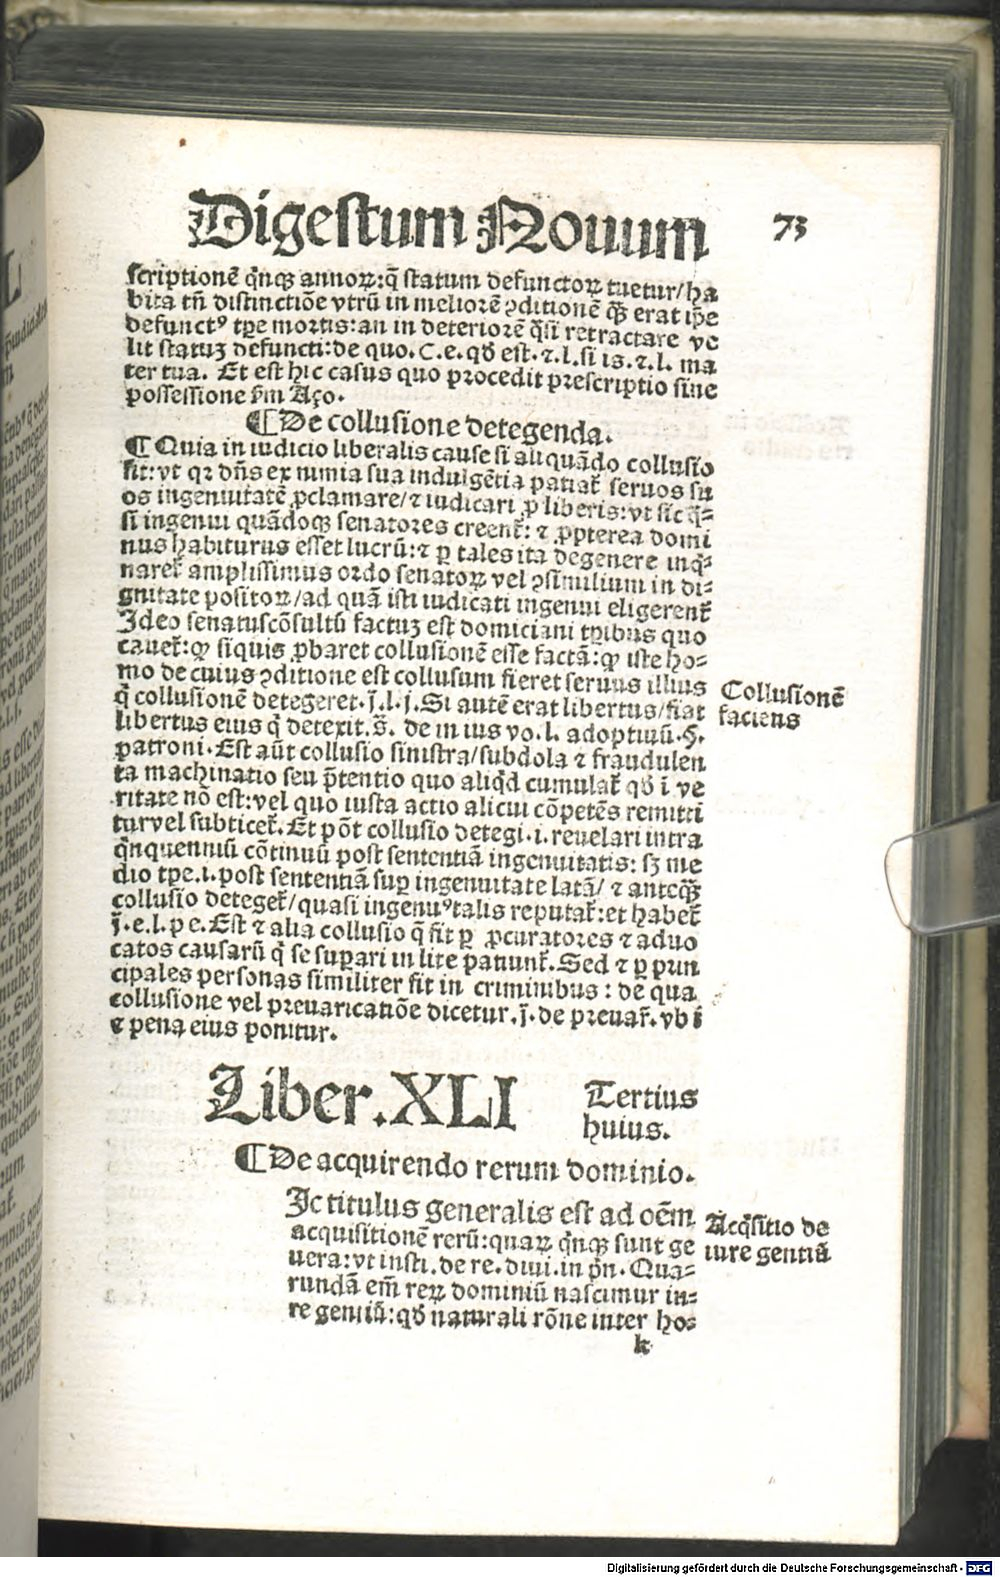 Digestum Nouum 73
scriptionē qͥnqꝫ annoꝝ: q̄ statum defunctoꝝ tuetur/ ha
bita tn̄ distinctiōe vtrū in meliorē ꝯditionē qꝫ̄ erat ip̄e
defunctꝰ tp̄e mortis: an in deteriorē q̄si retractare ve
lit statuꝫ defuncti: de quo. C. e. qđ est. ⁊. l. si is. ⁊. l. ma
ter tua. Et est hic casus quo procedit prescriptio sine
possessione ẜm Aço.
¶ De collusione detegenda.
¶ Quia in iudicio liberalis cause si aliquādo collusio
fit: vt qꝛ dn̄s ex nimia sua indulgētia patiat̄ seruos su
os ingenuitatē ꝓclamare/ ⁊ iudicari ꝓ liberis: vt sic q̄-
si ingenui quādoqꝫ senatores creent̄: ⁊ ꝓpterea domi
nus habiturus esset lucrū: ⁊ ꝑ tales ita degenere inqͥ-
naret̄ amplissimus ordo senatoꝝ vel ꝯsimilium in di-
gnitate positoꝝ/ ad quā isti iudicati ingenui eligerent̄
Ideo senatuscōsultū factuꝫ est domiciani tp̄ibus quo
cauet̄: ꝙ siquis ꝓbaret collusionē esse factā: ꝙ iste ho-
mo de cuius ꝯditione est collusum fieret seruus illius
qͥ collusionē detegeret. j̄. l. j. Si autē erat libertus/ fiat
libertus eius qͥ detexit. s̄. de in ius vo. l. adoptiuū. §.
patroni. Est aūt collusio sinistra/ subdola ⁊ fraudulen
ta machinatio seu p̄tentio quo aliqͥd cumulat̄ qđ ī ve
ritate nō est: vel quo iusta actio alicui cōpetēs remitti
tur vel subticet̄. Et pōt collusio detegi. i. reuelari intra
qͥnquenniū cōtinuū post sententiā ingenuitatis: sꝫ me
dio tp̄e. i. post sententiā suꝑ ingenuitate latā/ ⁊ anteqꝫ̄
collusio deteget̄/ quasi ingenuꝰ talis reputat̄: et habet̄
j̄. e. l. pe. Est ⁊ alia collusio q̄ fit ꝑ ꝓcuratores ⁊ aduo
catos causarū qͥ se suꝑari in lite patiunt̄. Sed ⁊ ꝑ prin
cipales personas similiter fit in criminibus: de qua
collusione vel preuaricatiōe dicetur. j̄. de preuar̄. vbi ī
⁊ pena eius ponitur.
Collusionē
faciens
Liber. XLI Tertius
huius.
¶ De acquirendo rerum dominio.
Ic titulus generalis est ad oēm
acquisitionē rerū: quaꝝ qͥnqꝫ sunt ge
nera: vt insti. de re. diui. in pn̄. Qua-
rundā em̄ reꝝ dominiū nascimur iu-
re gentiū: qđ naturali rōne inter ho-
Acqͥsitio de
iure gentiū
k
Digitalisierung gefördert durch die Deutsche Forschungsgemeinschaft - DFG